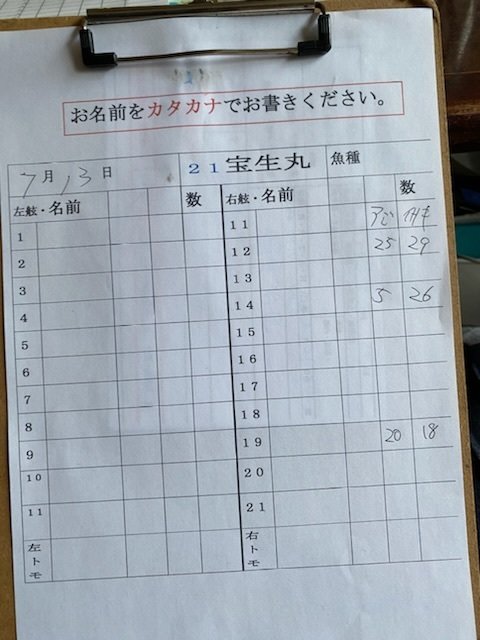 お名前をカタカナでお書きください。
7月13日 21宝生丸 魚種
左舷・名前 数 右舷・名前 数
1 11 アジ イサキ
2 12 25 29
3 13
4 14 5 26
5 15
6 16
7 17
8 18
9 19 20 18
10 20
11 21
左トモ 右トモ